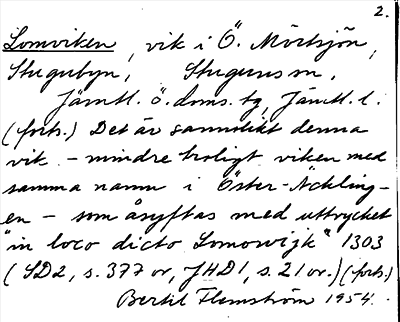 2.
Lomviken, vik i Ö. Mörtsjön,
Stugubyn, Stuguns sn,
Jämtl. ö. doms. tg, Jämtl. l.
(forts.) Det är sannolikt denna
vik – mindre troligt viken med
samma namn i Öster-Nöckling-
en – som åsyftas med uttrycket
"in loco dicto Lomowijk" 1303
(SD2, s. 377 or, JHD1, s. 21 or.) (forts.)
Bertil Flemström 1954.